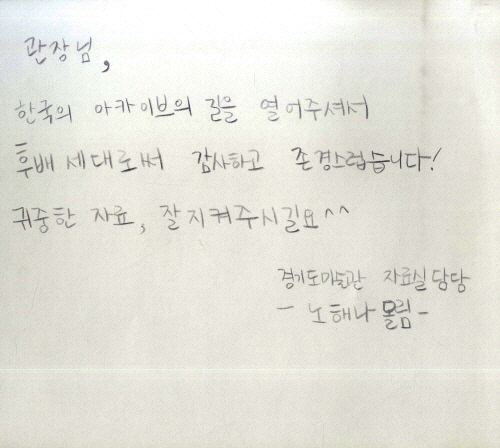 관장님,
한국의 아카이브의 길을 열어주셔서
후배 세대로써 감사하고 존경스럽습니다!
귀중한 자료, 잘 지켜주시길요^^
경기도미술관 자료실 담당
- 노해나 올림 -